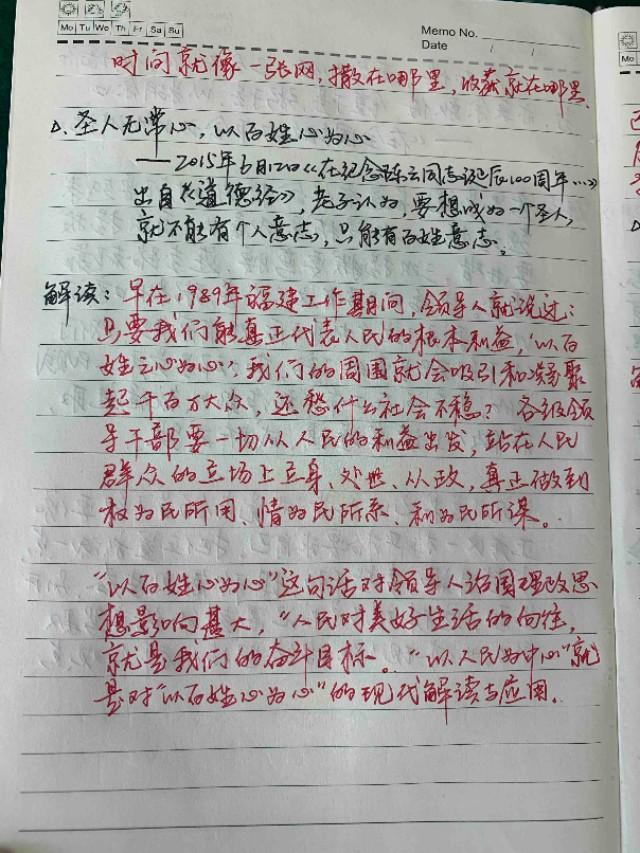 Mo Tu We Th Fr Sa Su
Memo No.
Date / /
Mo
时间就像一张网，撒在哪里，收获就在哪里。
△. 圣人无常心，以百姓心为心
——2015年6月12日《在纪念陈云同志诞辰100周年…》
出自《道德经》，老子认为，要想成为一个圣人，
就不能有个人意志，只能有百姓意志。
解读：早在1989年福建工作期间，领导人就说过：
只要我们能真正代表人民的根本利益，“以百
姓之心为心”，我们的周围就会吸引和凝聚
起千百万大众，还愁什么社会不稳？各级领
导干部要一切从人民的利益出发，站在人民
群众的立场上立身、处世、从政，真正做到
权为民所用、情为民所系、利为民所谋。
“以百姓心为心”这句话对领导人治国理政思
想影响甚大，“人民对美好生活的向往，
就是我们的奋斗目标。“以人民为中心”就
是对“以百姓心为心”的现代解读与应用。